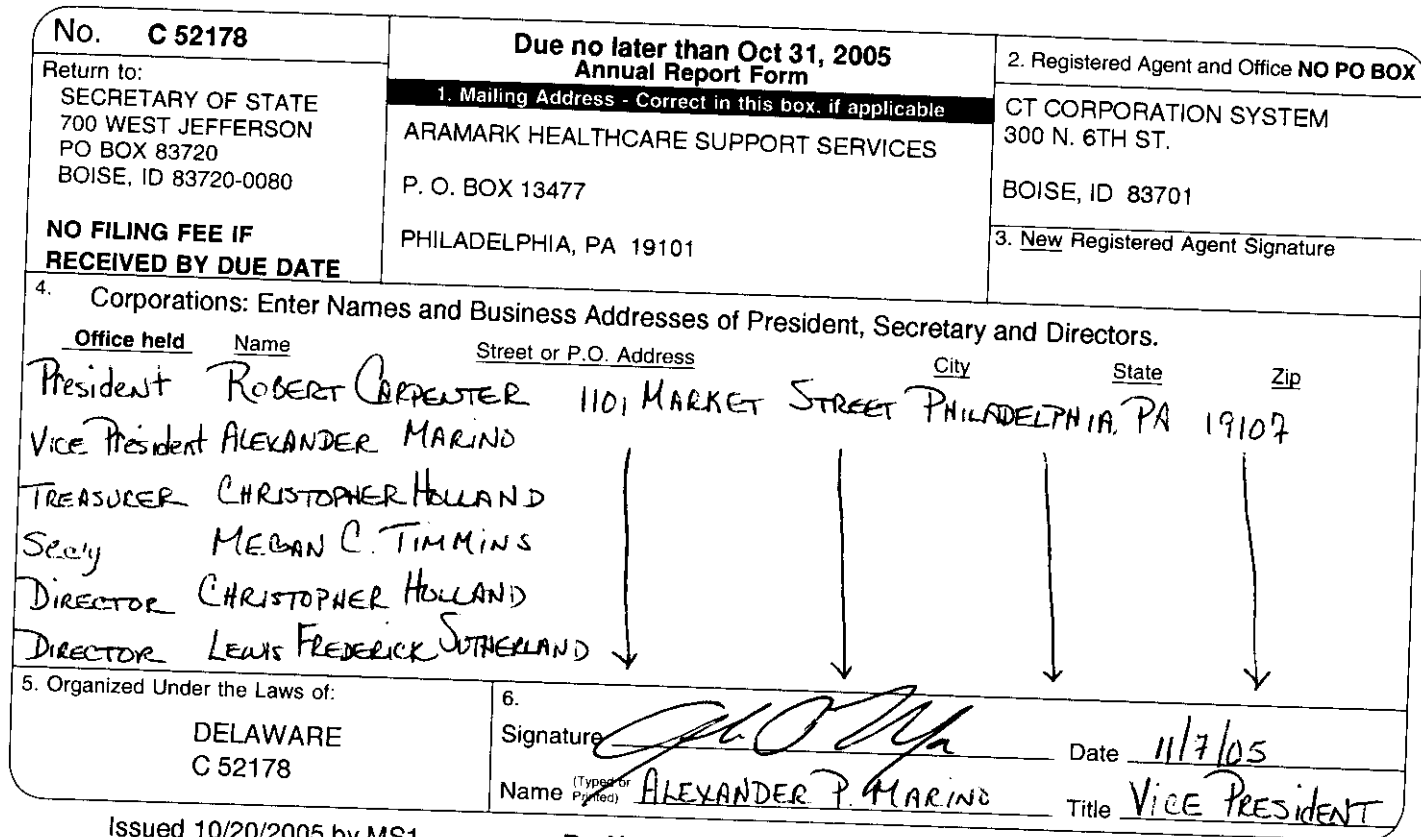 No. C 52178
Return to:
SECRETARY OF STATE
700 WEST JEFFERSON
PO BOX 83720
BOISE, ID 83720-0080
NO FILING FEE IF
RECEIVED BY DUE DATE
Due no later than Oct 31, 2005
Annual Report Form
1. Mailing Address - Correct in this box. if applicable
ARAMARK HEALTHCARE SUPPORT SERVICES
P. O. BOX 13477
PHILADELPHIA, PA 19101
2. Registered Agent and Office NO PO BOX
CT CORPORATION SYSTEM
300 N. 6TH ST.
BOISE, ID 83701
3. New Registered Agent Signature
4. Corporations: Enter Names and Business Addresses of President, Secretary and Directors.
Office held Name Street or P.O. Address City State Zip
President ROBERT CARPENTER 1101 MARKET STREET PHILADELPHIA, PA 19107
Vice President ALEXANDER MARINO
TREASURER CHRISTOPHER HOLLAND
Sec'y MEGAN C. TIMMINS
DIRECTOR CHRISTOPHER HOLLAND
DIRECTOR LEWIS FREDERICK SUTHERLAND
5. Organized Under the Laws of:
DELAWARE
C 52178
6.
Signature Date 11/7/05
Name (Typed or Printed) ALEXANDER P. MARINO Title VICE PRESIDENT
Issued 10/20/2005 by MS1